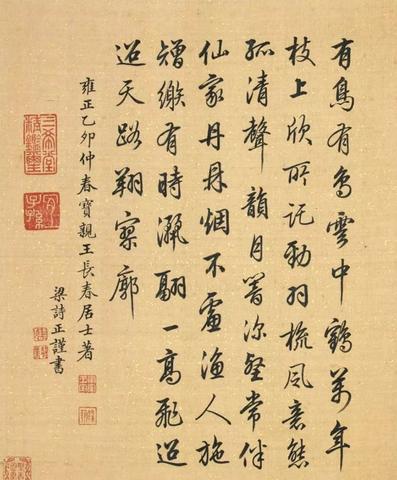 有鳥有鳥雲中鶴萬年
枝上欣所託勁羽梳風意態
孤清聲韻月響深壑常伴
仙家丹鼎烟不慮漁人施
矰繳有時灑翮一高飛迢
迢天路翔寥廓
雍正乙卯仲春寶親王長春居士著
梁詩正謹書
三希堂精鑑璽
宜子孫